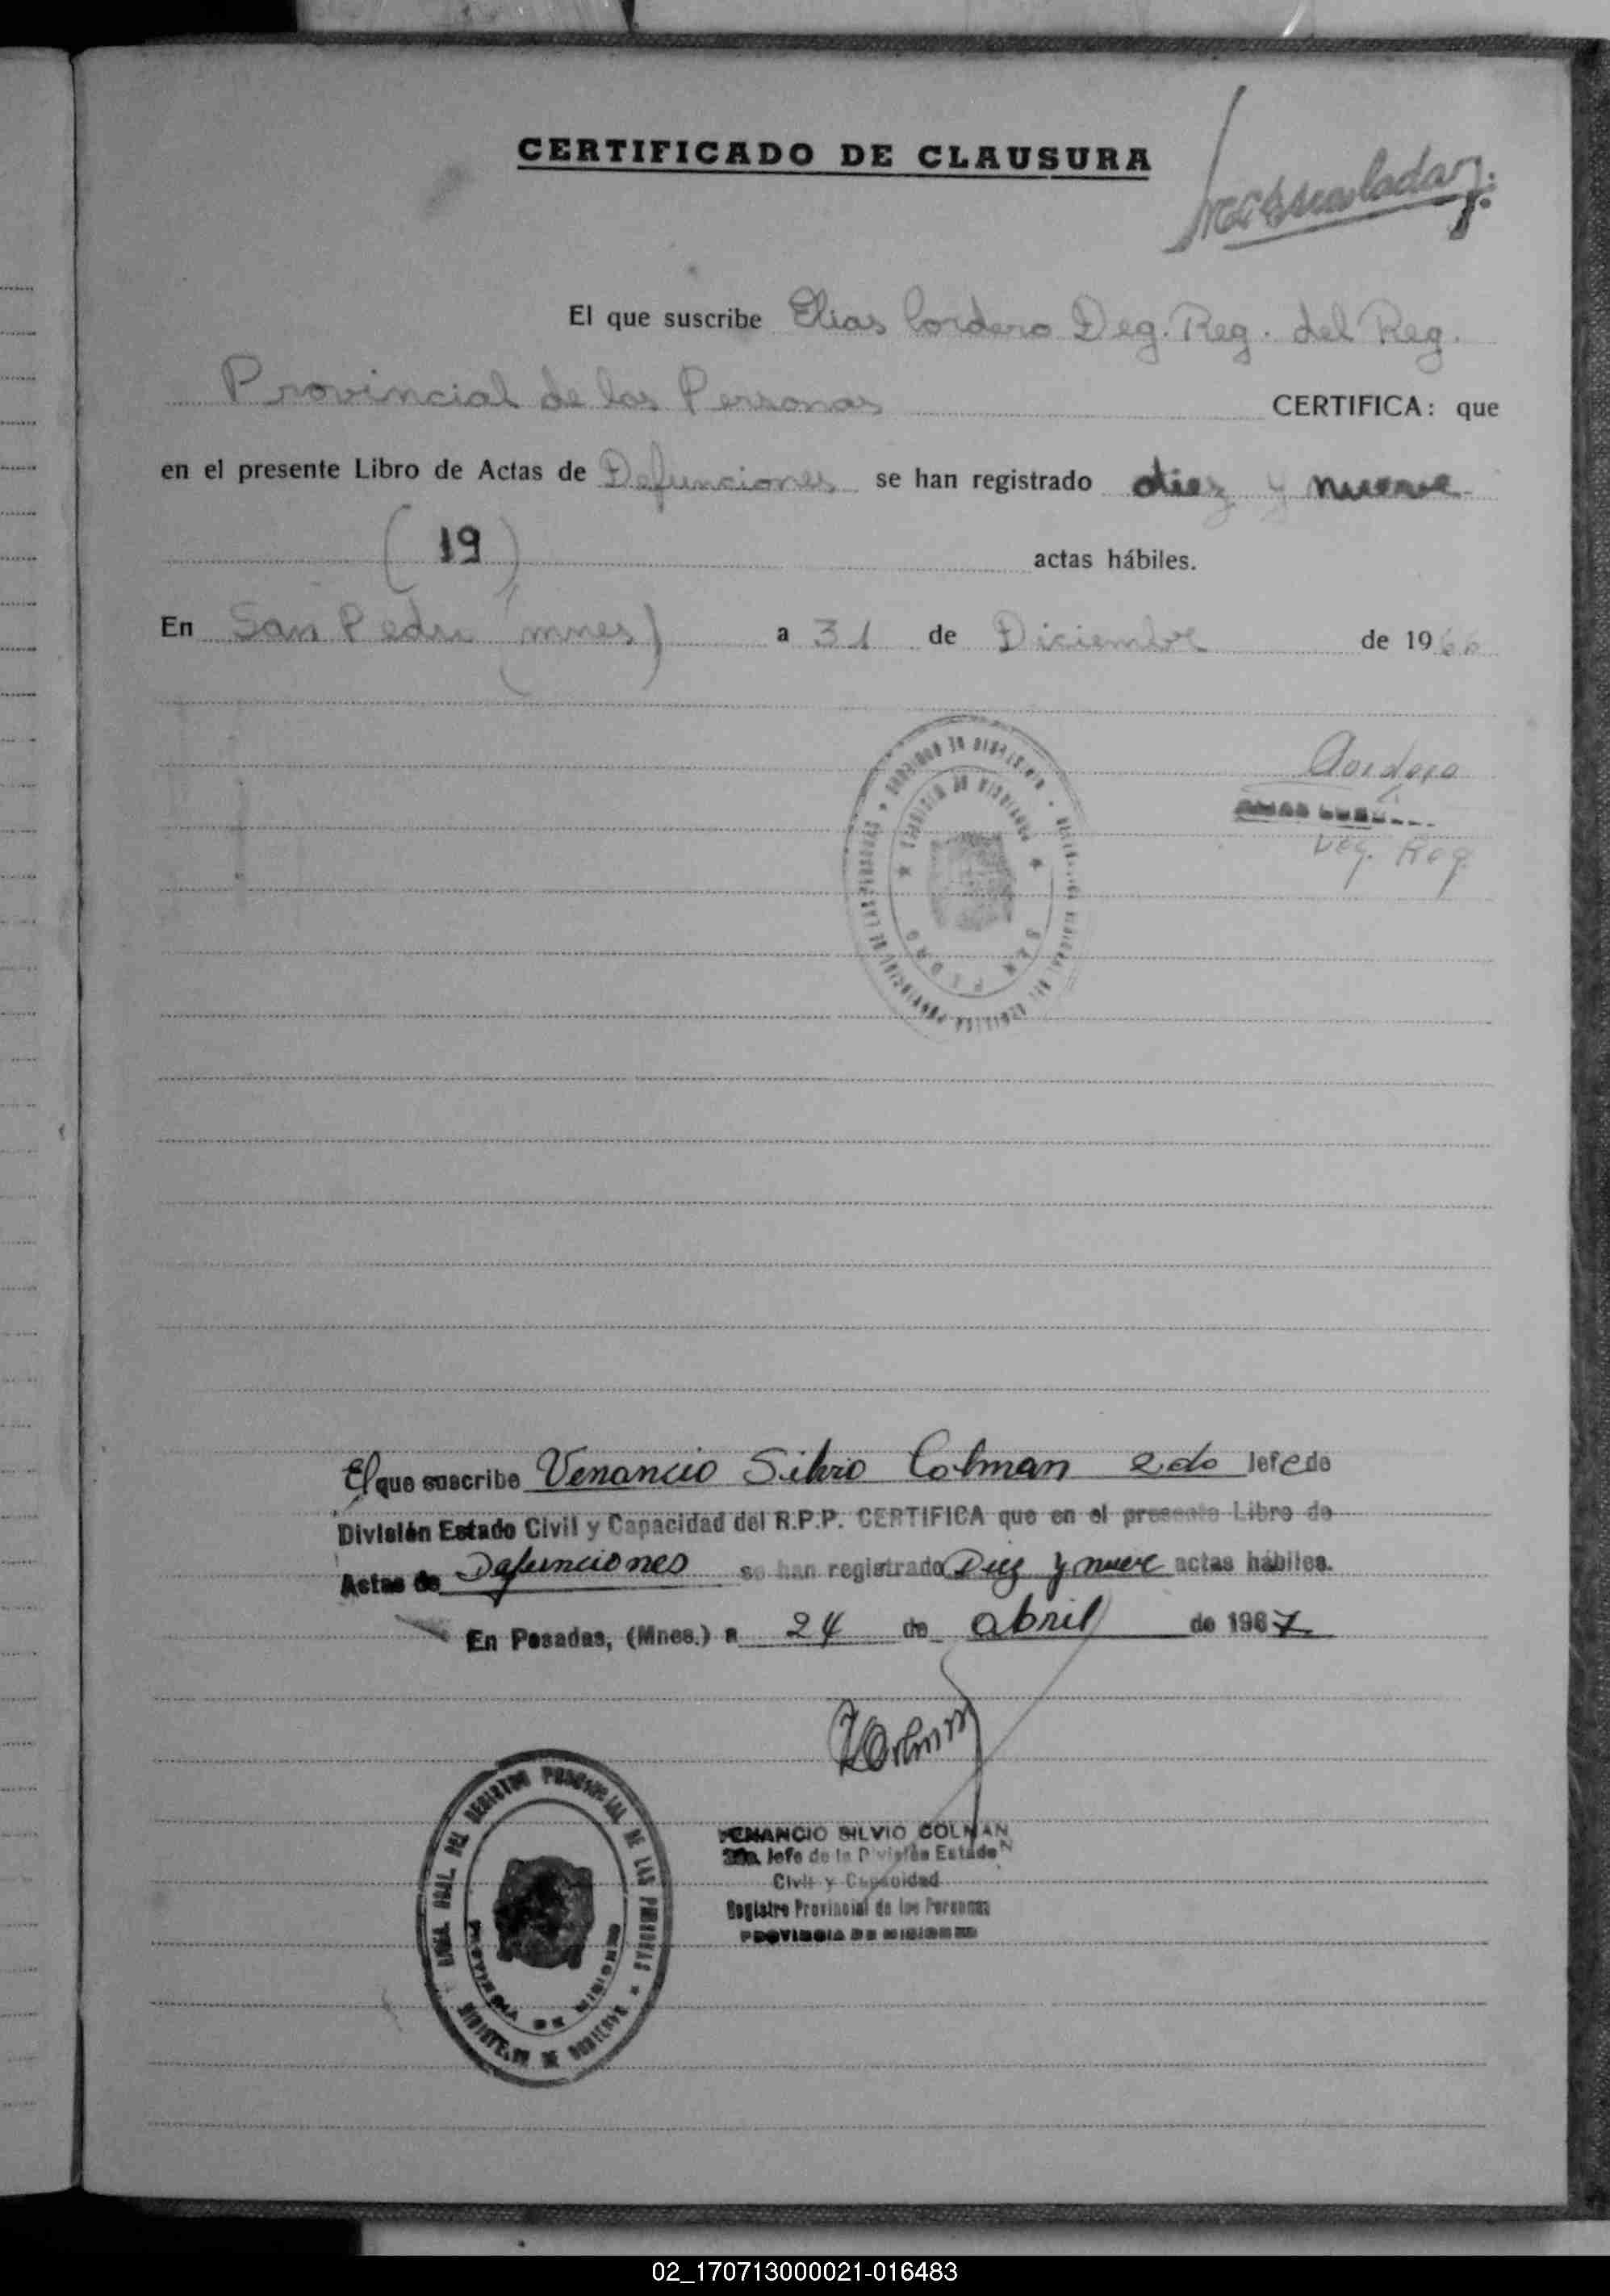 CERTIFICADO DE CLAUSURA
El que suscribe Elias Cordero Deg. Reg. del Reg.
Provincial de las Personas CERTIFICA: que
en el presente Libro de Actas de Defunciones se han registrado diez y nueve
(19) actas hábiles.
En San Pedro (mnes) a 31 de Diciembre de 1966
Cordero
Deg. Reg.
SAN PEDRO
El que suscribe Venancio Silvio Colman 2do Jefe de
División Estado Civil y Capacidad del R.P.P. CERTIFICA que en el presente Libro de
Actas de Defunciones se han registrado Diez y nueve actas hábiles.
En Posadas, (Mnes.) a 24 de abril de 1967
VENANCIO SILVIO COLMAN
2do. Jefe de la División Estado
Civil y Capacidad
Registro Provincial de las Personas
PROVINCIA DE MISIONES
GRAL. DEL REGISTRO PROVINCIAL DE LAS PERSONAS * MINISTERIO DE GOBIERNO
PROVINCIA DE MISIONES
02_170713000021-016483